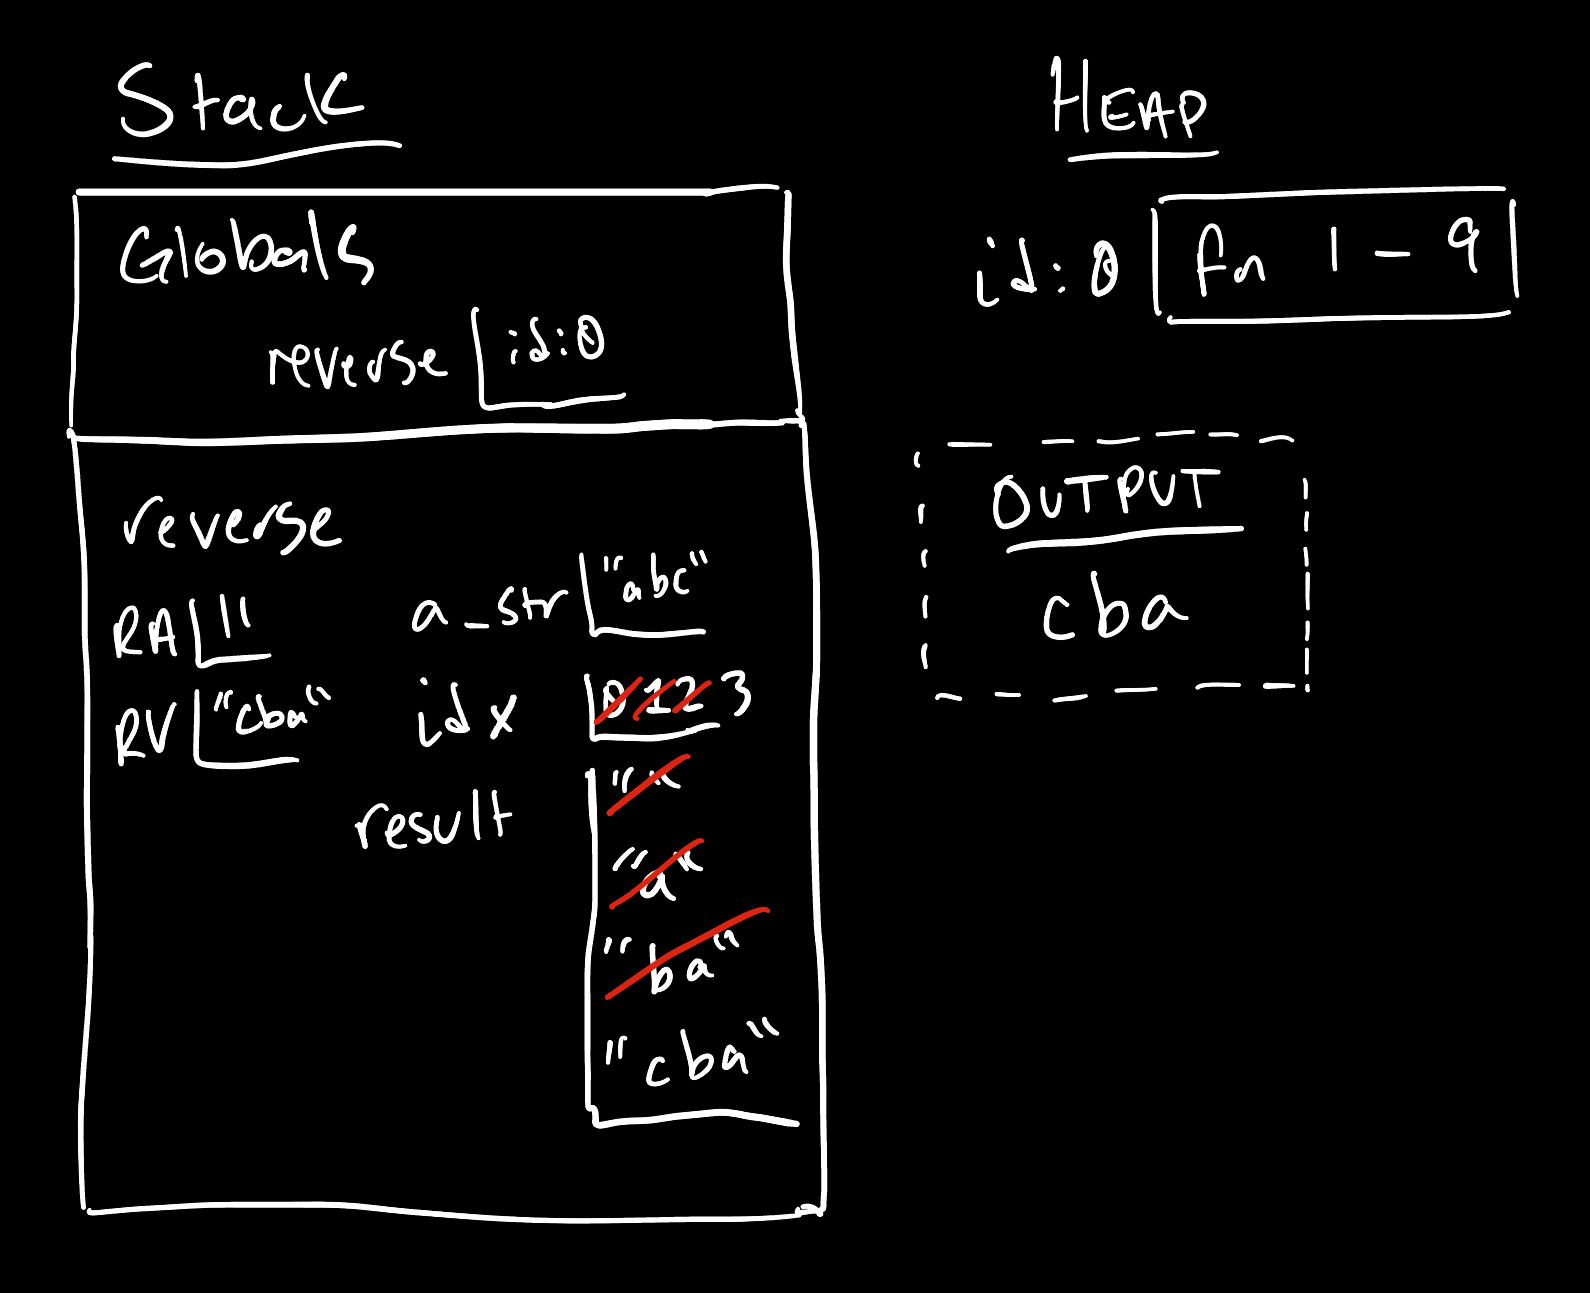 Stack
Globals
reverse id:0
reverse
RA 11
a_str "abc"
RV "cba"
idx 0 1 2 3
result " "
"a"
"ba"
"cba"
HEAP
id:0 fn 1 - 9
OUTPUT
cba